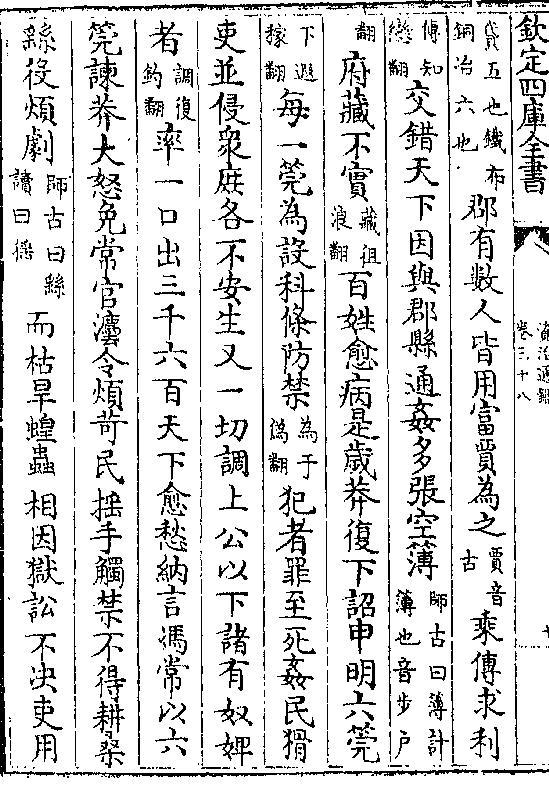 欽定四庫全書
資治通鑑
卷三十八
貸五也鐵布銅冶六也郡有數人皆用富賈為之賈音古乘傳求利
傳知戀翻交錯天下因與郡縣通姦多張空簿師古曰簿計簿也音步户
翻府藏不實藏徂浪翻百姓愈病是歲莽復下詔申明六筦
下遐稼翻每一筦為設科條防禁為于偽翻犯者罪至死姦民猾
吏並侵衆庶各不安生又一切調上公以下諸有奴婢
者調復釣翻率一口出三千六百天下愈愁納言馮常以六
筦諫莽大怒免常官灋令煩苛民揺手觸禁不得耕桑
繇役煩劇師古曰繇讀曰徭而枯旱蝗蟲相因獄訟不决吏用